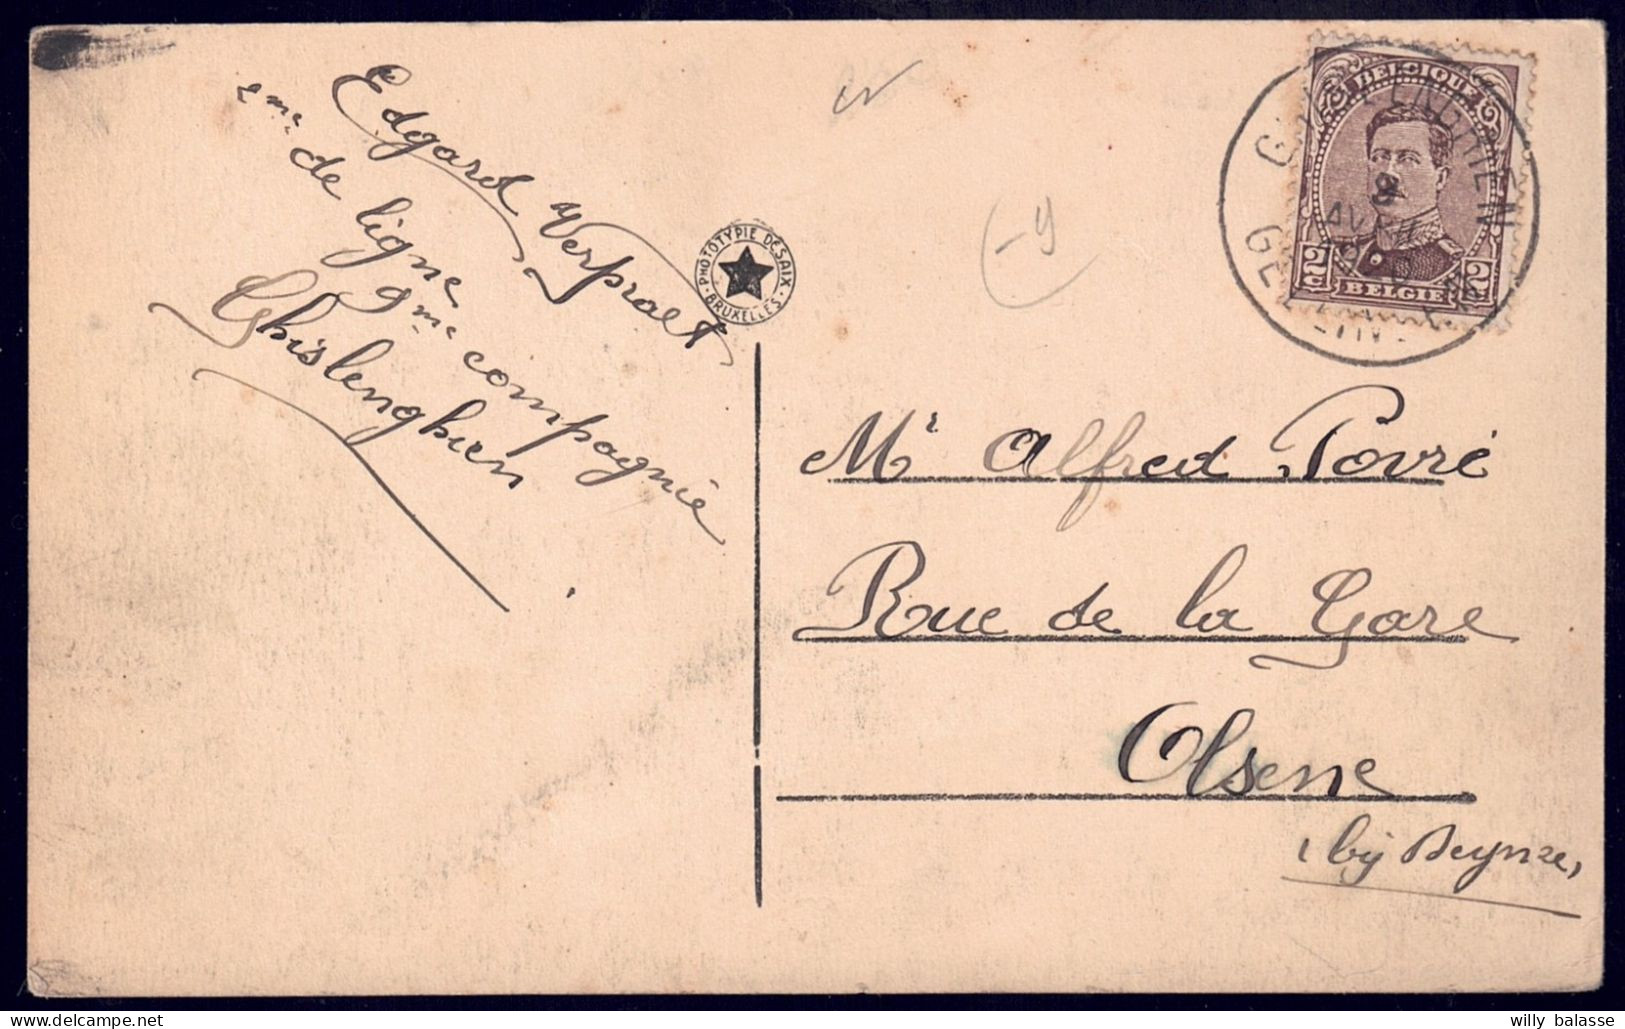 Edgard Verpraet
2me de ligne
9me compagnie
Ghislenghien
PHOTOTYPIE DESAIX
BRUXELLES
-9
BELGIQUE
2 2
BELGIE
8
Mr Alfred Povré
Rue de la Gare
Olsene
(bij Deynze)
willy balasse